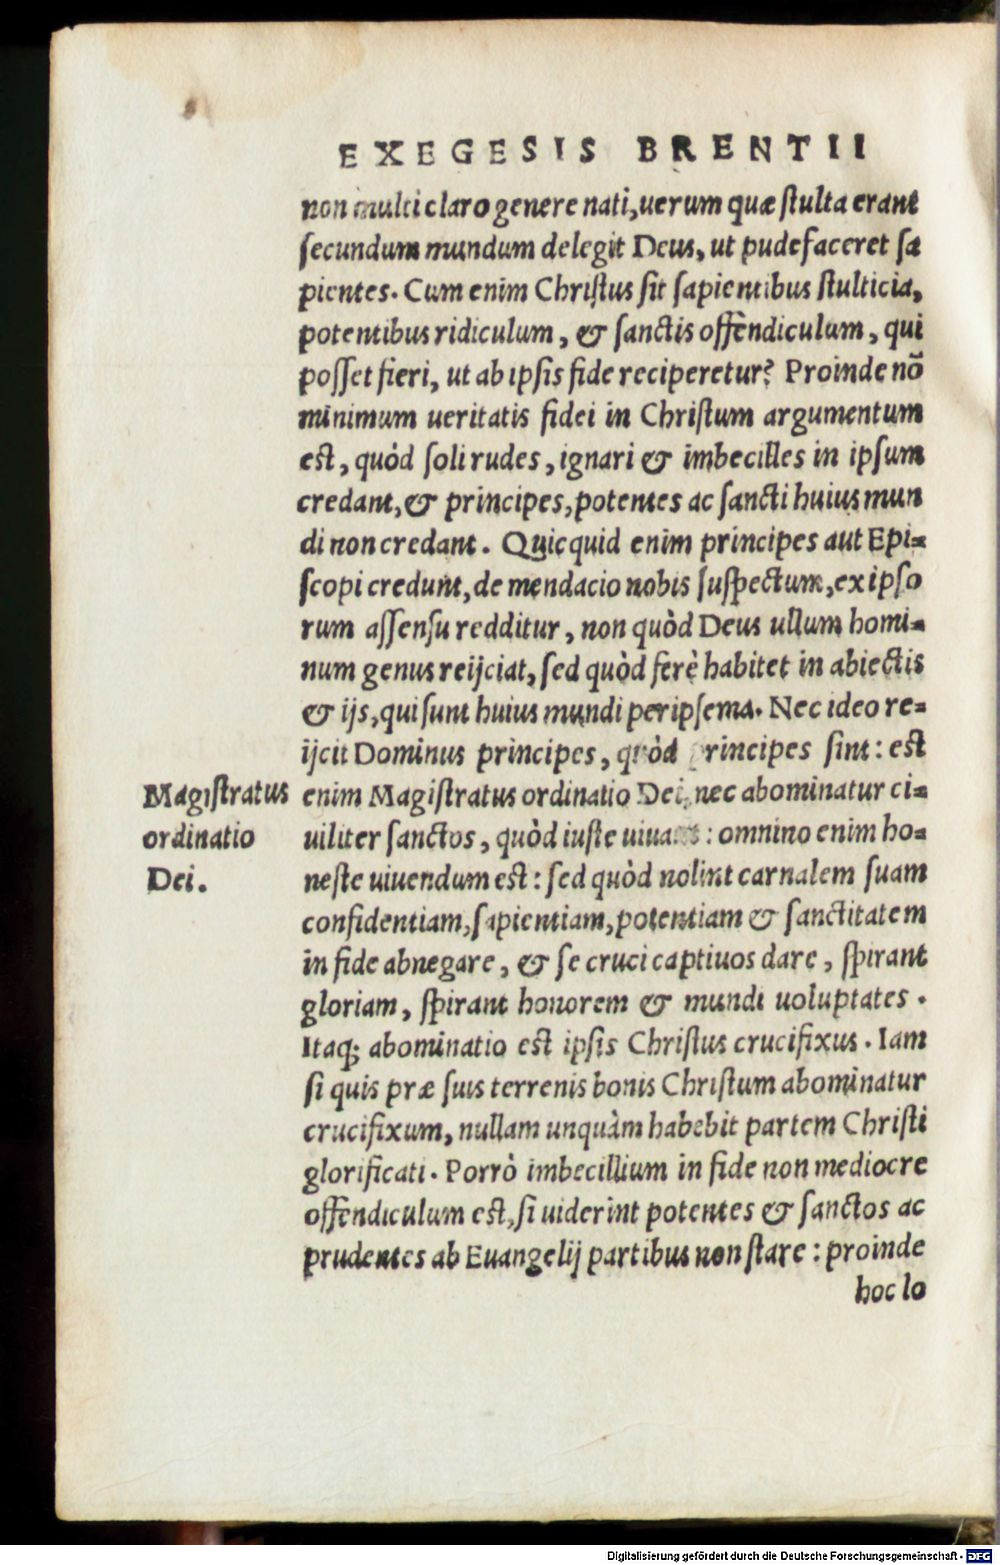 EXEGESIS BRENTII
non multi claro genere nati, uerum quæ ſtulta erant
ſecundum mundum delegit Deus, ut pudefaceret ſa
pientes. Cum enim Chriſtus ſit ſapientibus ſtulticia,
potentibus ridiculum, & ſanctis offendiculum, qui
poſſet fieri, ut ab ipſis fide reciperetur? Proinde nõ
minimum ueritatis fidei in Chriſtum argumentum
eſt, quòd ſoli rudes, ignari & imbecilles in ipſum
credant, & principes, potentes ac ſancti huius mun
di non credant. Quicquid enim principes aut Epi=
ſcopi credunt, de mendacio nobis ſuſpectum, ex ipſo
rum aſſenſu redditur, non quòd Deus ullum homi=
num genus reijciat, ſed quòd ferè habitet in abiectis
& ijs, qui ſunt huius mundi peripſema. Nec ideo re=
ijcit Dominus principes, quòd principes ſint: eſt
enim Magiſtratus ordinatio Dei, nec abominatur ci=
uiliter ſanctos, quòd iuſte uiuant: omnino enim ho=
neſte uiuendum eſt: ſed quòd nolint carnalem ſuam
confidentiam, ſapientiam, potentiam & ſanctitatem
in fide abnegare, & ſe cruci captiuos dare, ſpirant
gloriam, ſpirant honorem & mundi uoluptates.
Itaq; abominatio eſt ipſis Chriſtus crucifixus. Iam
ſi quis præ ſuis terrenis bonis Chriſtum abominatur
crucifixum, nullam unquàm habebit partem Chriſti
glorificati. Porrò imbecillium in fide non mediocre
offendiculum eſt, ſi uiderint potentes & ſanctos ac
prudentes ab Euangelij partibus non ſtare: proinde
hoc lo
Magiſtratus
ordinatio
Dei.
Digitalisierung gefördert durch die Deutsche Forschungsgemeinschaft - DFG